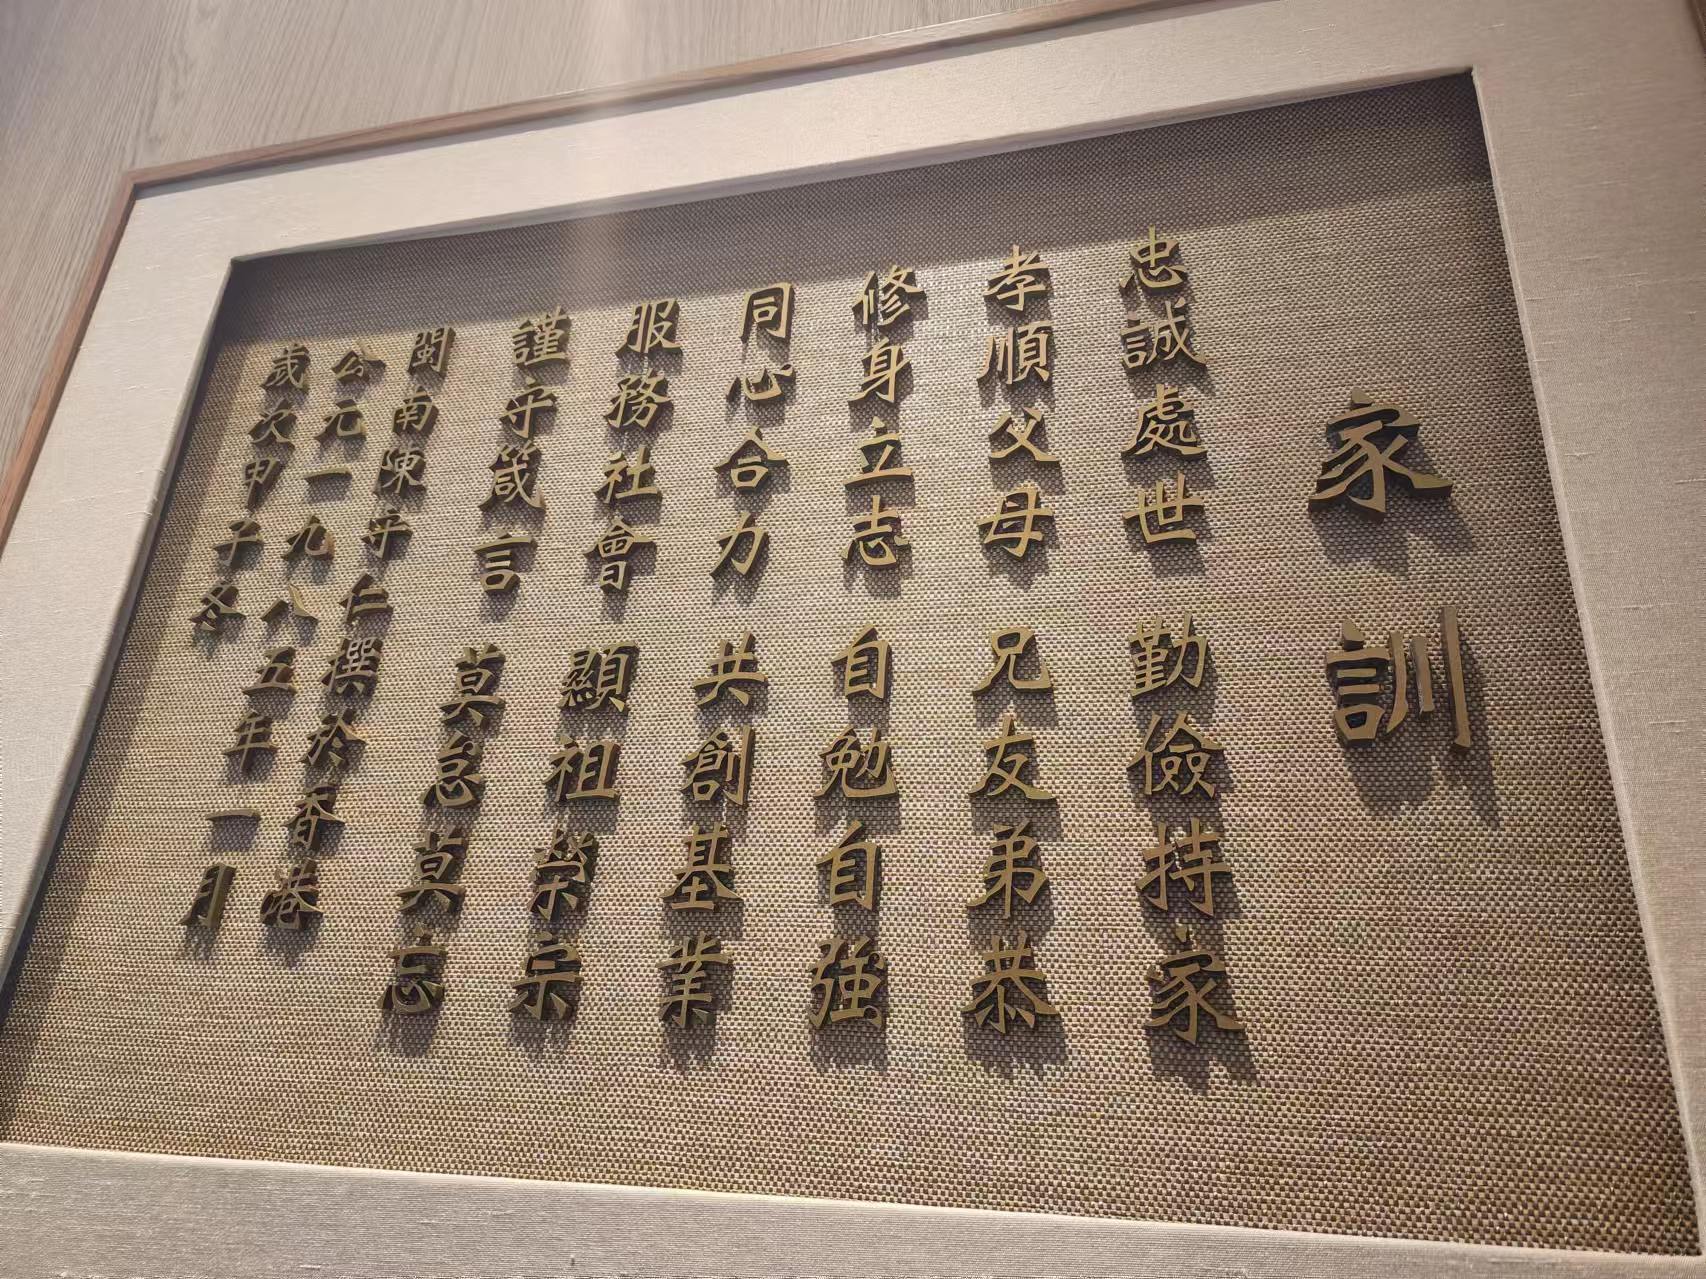 家訓
忠誠處世 勤儉持家
孝順父母 兄友弟恭
修身立志 自勉自強
同心合力 共創基業
服務社會 顯祖榮宗
謹守箴言 莫怠莫忘
閩南陳守仁撰於香港
公元一九八五年一月
歲次甲子冬